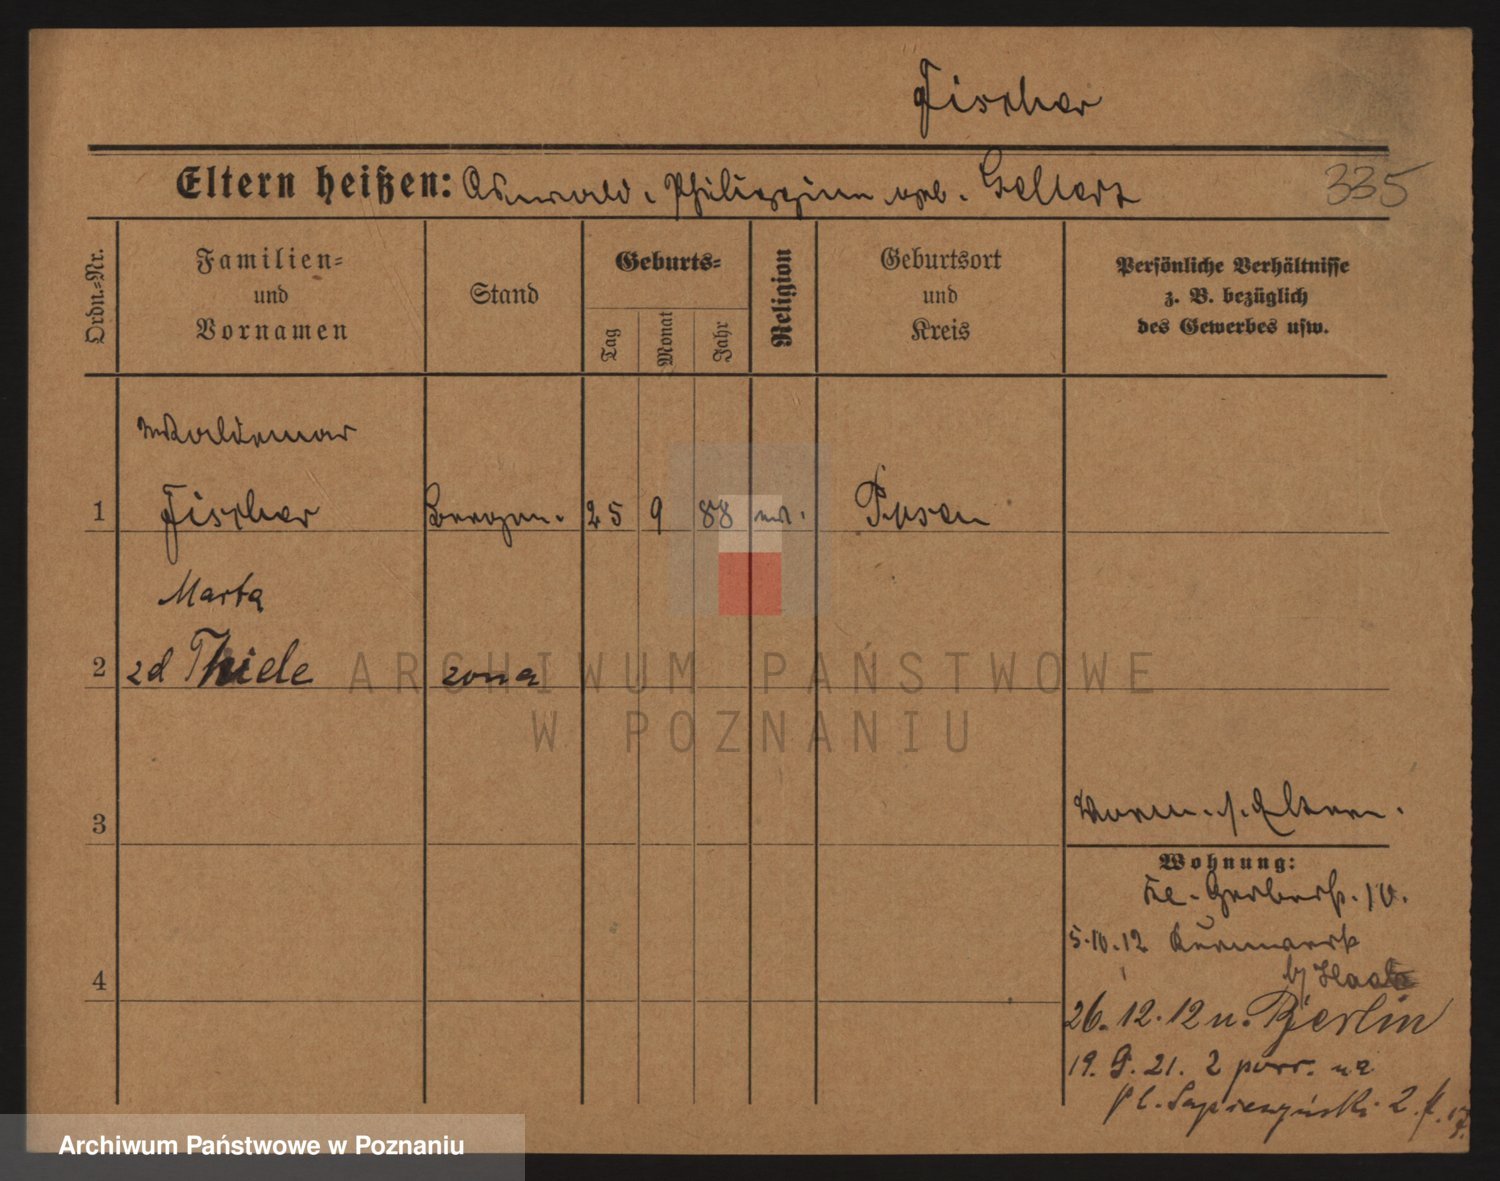 Fischer
Eltern heißen: Oswald u. Philippine geb. Gellert
335
Ordn.-Nr.
Familien-
und
Vornamen
Stand
Geburts-
Tag
Monat
Jahr
Religion
Geburtsort
und
Kreis
Persönliche Verhältnisse
z. B. bezüglich
des Gewerbes usw.
Waldemar
1 Fischer 25 9 88 Posen
Marta
2 zd Thiele zona
ARCHIWUM PAŃSTWOWE
W POZNANIU
3 Eltern.
Wohnung:
Kl. Gerberstr. 10.
4 5.10.12
26.12.12 n. Berlin
19. 9. 21. 2 na
Pl. Sapieżyński 2.
Archiwum Państwowe w Poznaniu